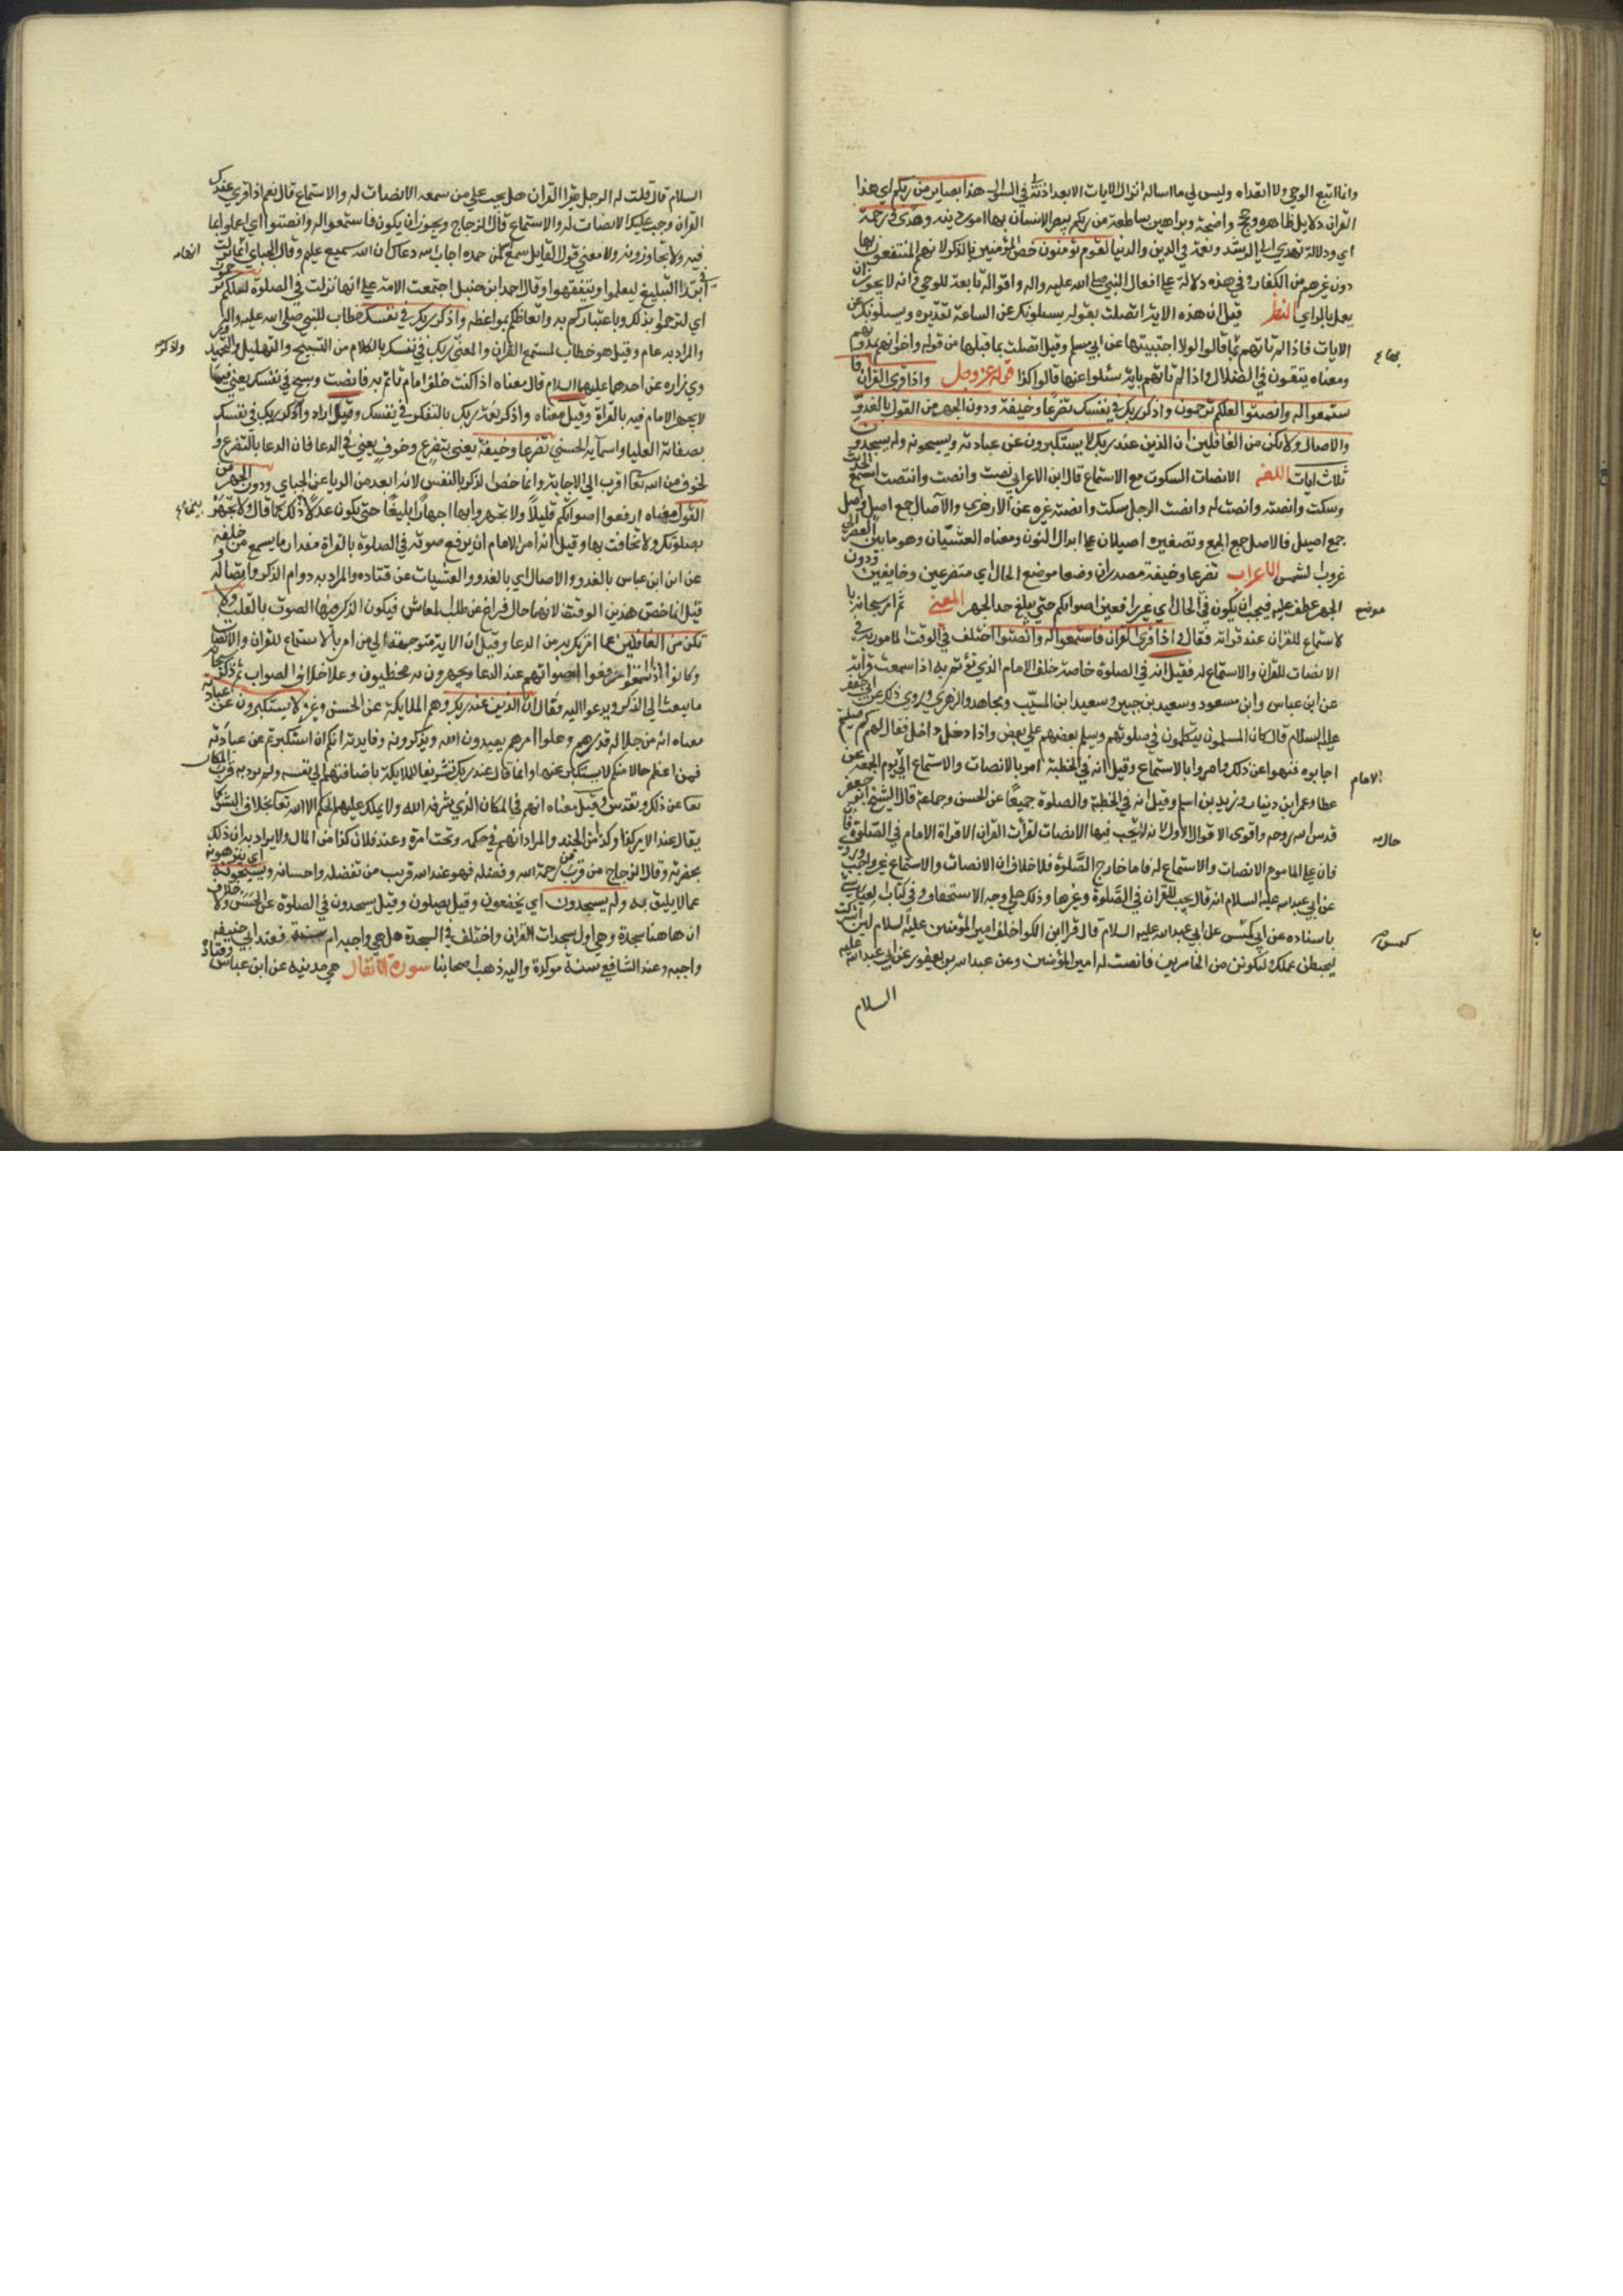 وانما اتبع الوحي ولا اتعداه وليس لي ما اساله انزال الايات الا بعد اذنه لي في السوال هذا بصاير من ربكم اي هذا
القران دلايل ظاهره وحجج واضحة وبراهين ساطعة من ربكم يبصر الانسان بها امور دينه وهدى ورحمة
اي ودلالة تهدي الي الرشد ونعمة في الدين والدنيا لقوم يؤمنون خص المؤمنين بالذكر لانهم المنتفعون بها
دون غيرهم من الكفار وفي هذه دلالة علي افعال النبي صلي الله عليه واله واقواله تابعة للوحي وانه لا يجوز ان
يعمل بالراي النظم قيل ان هذه الاية اتصلت بقوله يسئلونك عن الساعة تقديره ويسئلونك عن
الايات فاذا لم تاتهم بها قالوا لولا اجتبيتها عن ابي مسلم وقيل اتصلت بما قبلها من قوله واخوانهم يمدونهم
ومعناه يبقون في الضلال واذا لم تاتهم باية سئلوا عنها قالوا كذا قوله عز وجل واذا قرئ القران فا
ستمعوا له وانصتوا لعلكم ترحمون واذكر ربك في نفسك تضرعا وخيفة ودون الجهر من القول بالغدو
والاصال ولا تكن من الغافلين ان الذين عند ربك لا يستكبرون عن عبادته ويسبحونه وله يسجدون
ثلاث ايات اللغه الانصات السكوت مع الاستماع قال ابن الاعرابي نصت وانصت وانتصت استمع الحديث
وسكت وانصته وانصت له وانصت الرجل سكت وانصته غيره عن الازهري والآصال جمع اصل واصل
جمع اصيل فالاصل جمع الجمع وتصغيره اصيلان علي ابدال النون ومعناه العشيان وهو ما بين العصر الي
غروب الشمس الاعراب تضرعا وخيفة مصدران وضعا موضع الحال اي متضرعين وخايفين ودون
الجهر عطف عليه فيجب ان يكون في الحال اي غير رافعين اصواتكم حتي يبلغ حد الجهر المعني ثم امر سبحانه با
لاستماع للقران عند قراته فقال واذا قرئ القران فاستمعوا له وانصتوا اختلف في الوقت المامور فيه
الانصات للقران والاستماع له فقيل انه في الصلوة خاصة خلف الامام الذي تؤتم به اذا سمعت قراته
عن ابن عباس وابن مسعود وسعيد بن جبير وسعيد ابن المسيّب ومجاهد والزهري وروي ذلك عن ابي جعفر
عليه السلام قال كان المسلمون يتكلمون في صلوتهم ويسلم بعضهم علي بعض واذا دخل داخل فقال لهم كم صليتم
اجابوه فنهوا عن ذلك وامروا بالاستماع وقيل انه في الخطبة امروا بالانصات والاستماع الي يوم الجمعة عن
عطا وعمرابن دينار وزيد بن اسلم وقيل انه في الخطبة والصلوة جميعًا عن الحسن وجماعة قال الشيخ ابو جعفر
قدس الله روحه واقوى الاقوال الاول لانه لا يجب فيها الانصات لقرأت القران الا قراة الامام في الصلوة
فان علي الماموم الانصات والاستماع له فاما خارج الصَّلوة فلا خلاف ان الانصات والاستماع غير واجب وروي
عن ابي عبدالله عليه السلام انه قال يجب للقران في الصَّلوة وغيرها وذلك علي وجه الاستحباب وفي كتاب العياشي
باسناده عن ابي كهمس عن ابي عبدالله عليه السلام قال قرا ابن الكوا خلف امير المؤمنين عليه السلام لئن اشركت
ليحبطن عملك ولتكونن من الخاسرين فانصت له امير المؤمنين وعن عبدالله بن يعفور عن ابي عبدالله عليه
السلام
بها ع
موضع
الامام
كهمس
السلام قال قلت له الرجل يقرا القران هل يجب علي من سمعه الانصات له والاستماع قال نعم اذا قرئ عندك
القران وجب عليك الانصات له والاستماع قال الزجاج ويجوز ان يكون فاستمعوا له وانصتوا اي اعملوا بما
فيه ولا تجاوزوه ولا معني قول القايل سمع الله لمن حمده اجاب الله دعاك ان الله سميع عليم وقال الجباي انها نزلت
في ابتدا التبليغ ليعلموا ويتفقهوا وقال احمد ابن حنبل اجتمعت الامة علي انها نزلت في الصلوة لعلكم ترحمون
اي لترحموا بذلك وباعتباركم به واتعاظكم بمواعظه واذكر ربك في نفسك خطاب للنبي صلي الله عليه واله
والمراد به عام وقيل هو خطاب لمستمع القران والمعني واذكر ربك في نفسك بالكلام من التسبيح والتهليل والتحميد
وروي زراره عن احدهما عليهما السلام قال معناه اذا كنت خلف امام تاتم به فانصت وسبح في نفسك يعني فيما
لا يجهر الامام فيه بالقراة وقيل معناه واذكر نعمة ربك بالتفكر في نفسك وقيل اراد واذكر ربك في نفسك
بصفاته العليا واسمآيه الحسني تضرعا وخيفة يعني بتضرع وخوف يعني في الدعا فان الدعا بالتضرع وا
لخوف من الله تعا اقرب الي الاجابة وانما خص الذكر بالنفس لانه ابعد من الريا عن الجباي ودون الجهر من
القول معناه ارفعوا اصواتكم قليلًا ولا تجهروا بها اجهارًا بليغًا حتي يكون عدلا ذلك كما قال ولا تجهر
بصلوتك ولا تخافت بها وقيل انه امر الامام ان يرفع صوته في الصلوة بالقراة مقدار ما يسمع من خلفه
عن ابن عباس بالغدو والاصال اي بالغدو والعشيات عن قتاده والمراد به دوام الذكر واتصاله
قيل انما خص هذين الوقتين لانهما حال فراغ عن طلب المعاش فيكون الذكر فيهما الصوت بالقلب ولا
تكن من الغافلين عما امرتك به من الدعا وقيل ان الاية متوجهة الي من امر بالاستماع للقران والانصات
وكانوا اذا سمعوا رفعوا اصواتهم عند الدعا ويجهرون به مخطيون وعلا خلاف الصواب ثم ذكر سبحانه
ما يبعث الي الذكر ويدعوا اليه فقال ان الذين عند ربك وهم الملايكة عن الحسن وغيره لا يستكبرون عن عبادته
معناه انه من جلاله قدرهم وعلوا امرهم يعبدون الله ويذكرونه وفايدته انكم ان استكبرتم عن عبادته
فمن اعظم حالا منكم لا يستكبر عنها وانما قال عند ربك تشريفا للملايكة باضافتهم الي نفسه ولم يرد به قرب المكان
تعا عن ذلك وتقدس وقيل معناه انهم في المكان الذي شرفه الله ولا يملك عليهم الحكم الا الله تعا بخلاف البشر كما
يقال عند الامير كذا وكذا من الجند والمراد انهم في حكمه وتحت امره وعند فلان كذا من المال ولا يراد به ان ذلك
بحضرته وقال الزجاج من قرب من رحمة الله وفضله فهو عند الله قريب من تفضله واحسانه ويسبحونه اي ينزهونه
عما لا يليق به وله يسجدون اي يخضعون وقيل يصلون وقيل يسجدون في الصلوة عن الحسن ولا خلاف
ان هاهنا سجدة وهي اول سجدات القران واختلف في السجدة هل هي واجبه ام سنة فعند ابي حنيفه
واجبه وعند الشافعي سنة موكدة واليه ذهب اصحابنا سورة الانفال هي مدنيه عن ابن عباس وقتادة
انها
واذكر